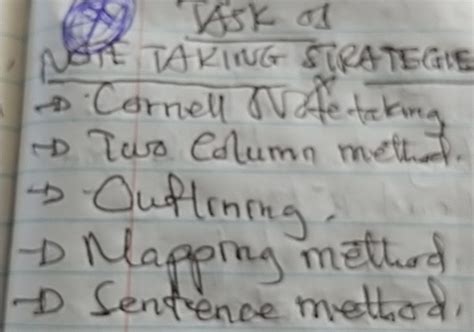 TASK 01
NOTE TAKING STRATEGIE
→ Cornell Note taking
→ Two Column method.
→ Outlining.
→ Mapping method
→ Sentence method.